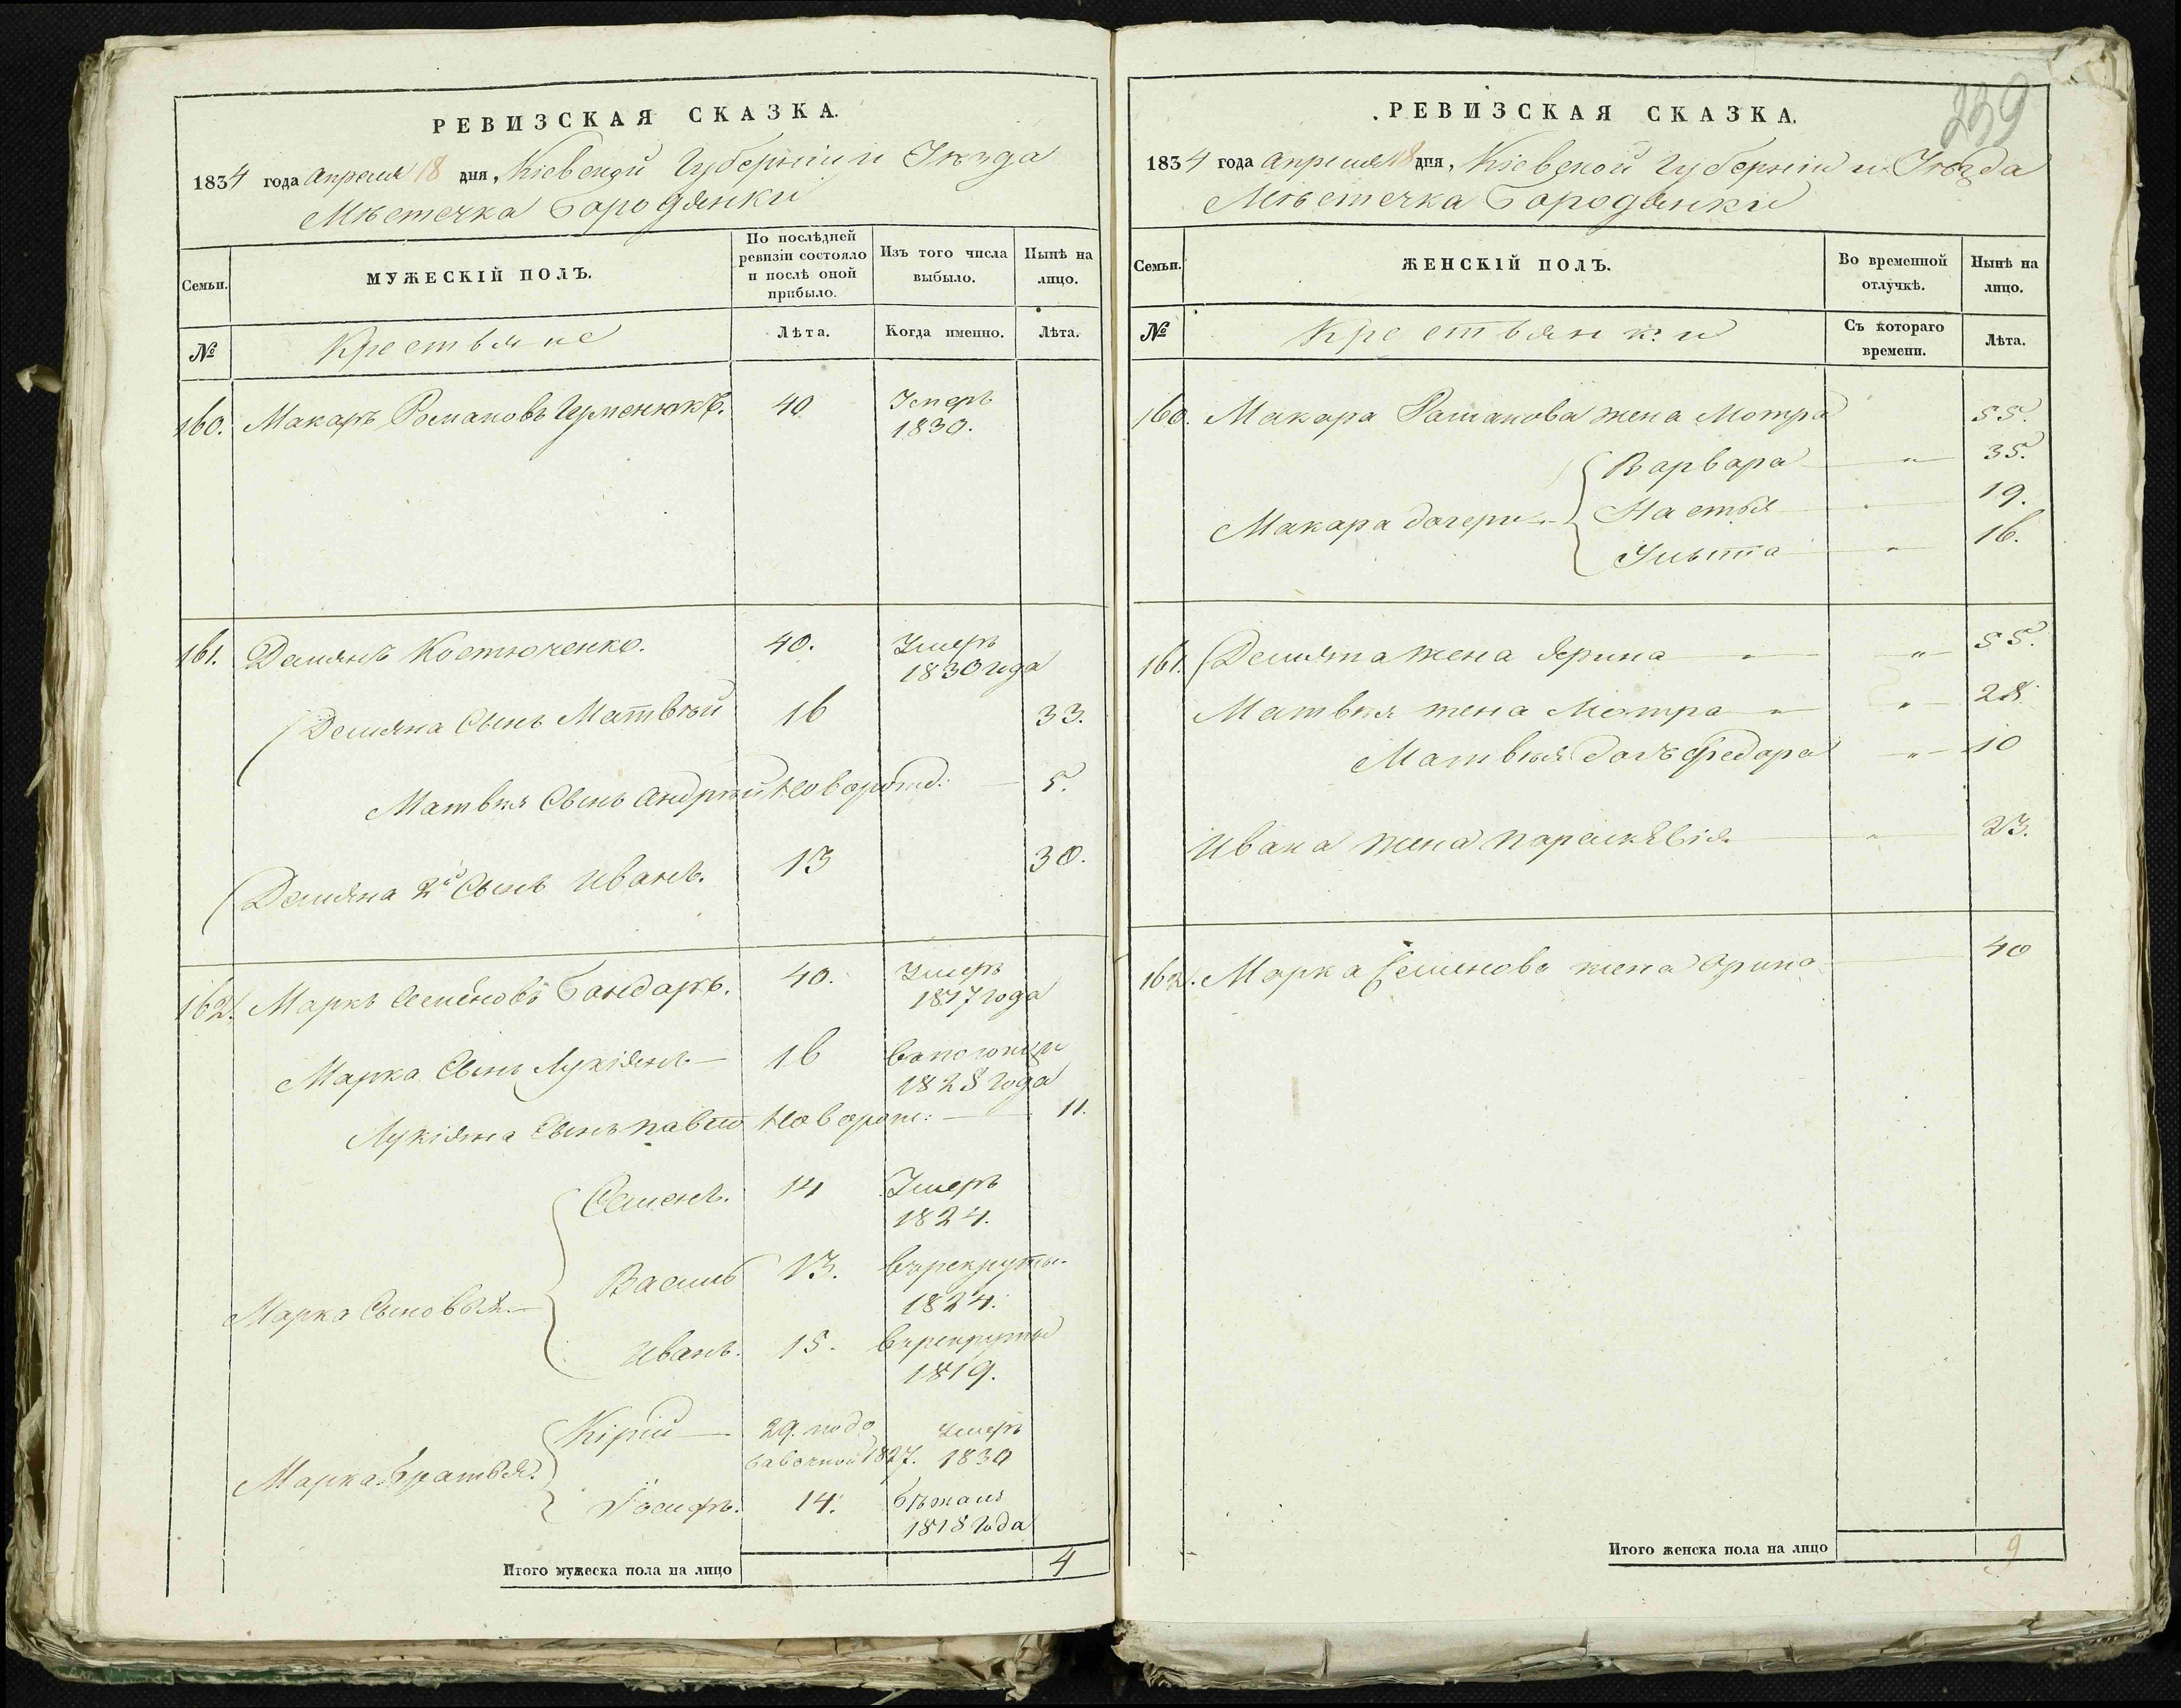 РЕВИЗСКАЯ СКАЗКА.
1834 года Апреля 18 дня, Кіевской Губерніи и Уѣзда
Мѣстечка Бородянки
Семьи.
МУЖЕСКІЙ ПОЛЪ.
По послѣдней ревизіи состояло и послѣ оной прибыло.
Изъ того числа выбыло.
Нынѣ на лицо.
№
Крестьяне
Лѣта.
Когда именно.
Лѣта.
160. Макаръ Романовъ 40 Умеръ
1830.
161. Демянъ Костюченко. 40. Умеръ
1830 года
Демяна Сынъ Матвѣй 16 33.
Матвѣя Сынъ Андрѣй новорожд: 5.
Демяна 2й Сынъ Иванъ. 13 30.
162. Маркъ Семеновъ Бондаръ. 40. Умеръ
1817 года
Марка Сынъ Лукіянъ 16
1828 года
Лукіяна Сынъ Павло Новорож: 11.
Семенъ. 14 Умеръ
1824.
Марка Сыновья Василь 13. Върекруты.
1824.
Иванъ. 15. Върекруты
1819.
Марка братья. Кірій 29. по до Умеръ
бавочной 1827. 1830
Іосифъ. 14. бѣжалъ
1818 года
Итого мужеска пола на лицо 4
239
РЕВИЗСКАЯ СКАЗКА.
1834 года Апреля 18 дня, Кіевской Губерніи и Уѣзда
Мѣстечка Бородянки
Семьи.
ЖЕНСКІЙ ПОЛЪ.
Во временной отлучкѣ.
Нынѣ на лицо.
№
Крестьянки
Съ котораго времени.
Лѣта.
160. Макара Романова жена Мотра 55.
Варвара " 35.
Макара дочери Настья " 19.
Ульита " 16.
161. Демяна жена Ярина " 55.
Матвѣя жена Мотра " 28.
Матвѣя дочь Федора " 10
Ивана жена Параскѣвія " 23.
162. Марка Семенова жена Орина 40
Итого женска пола на лицо 9